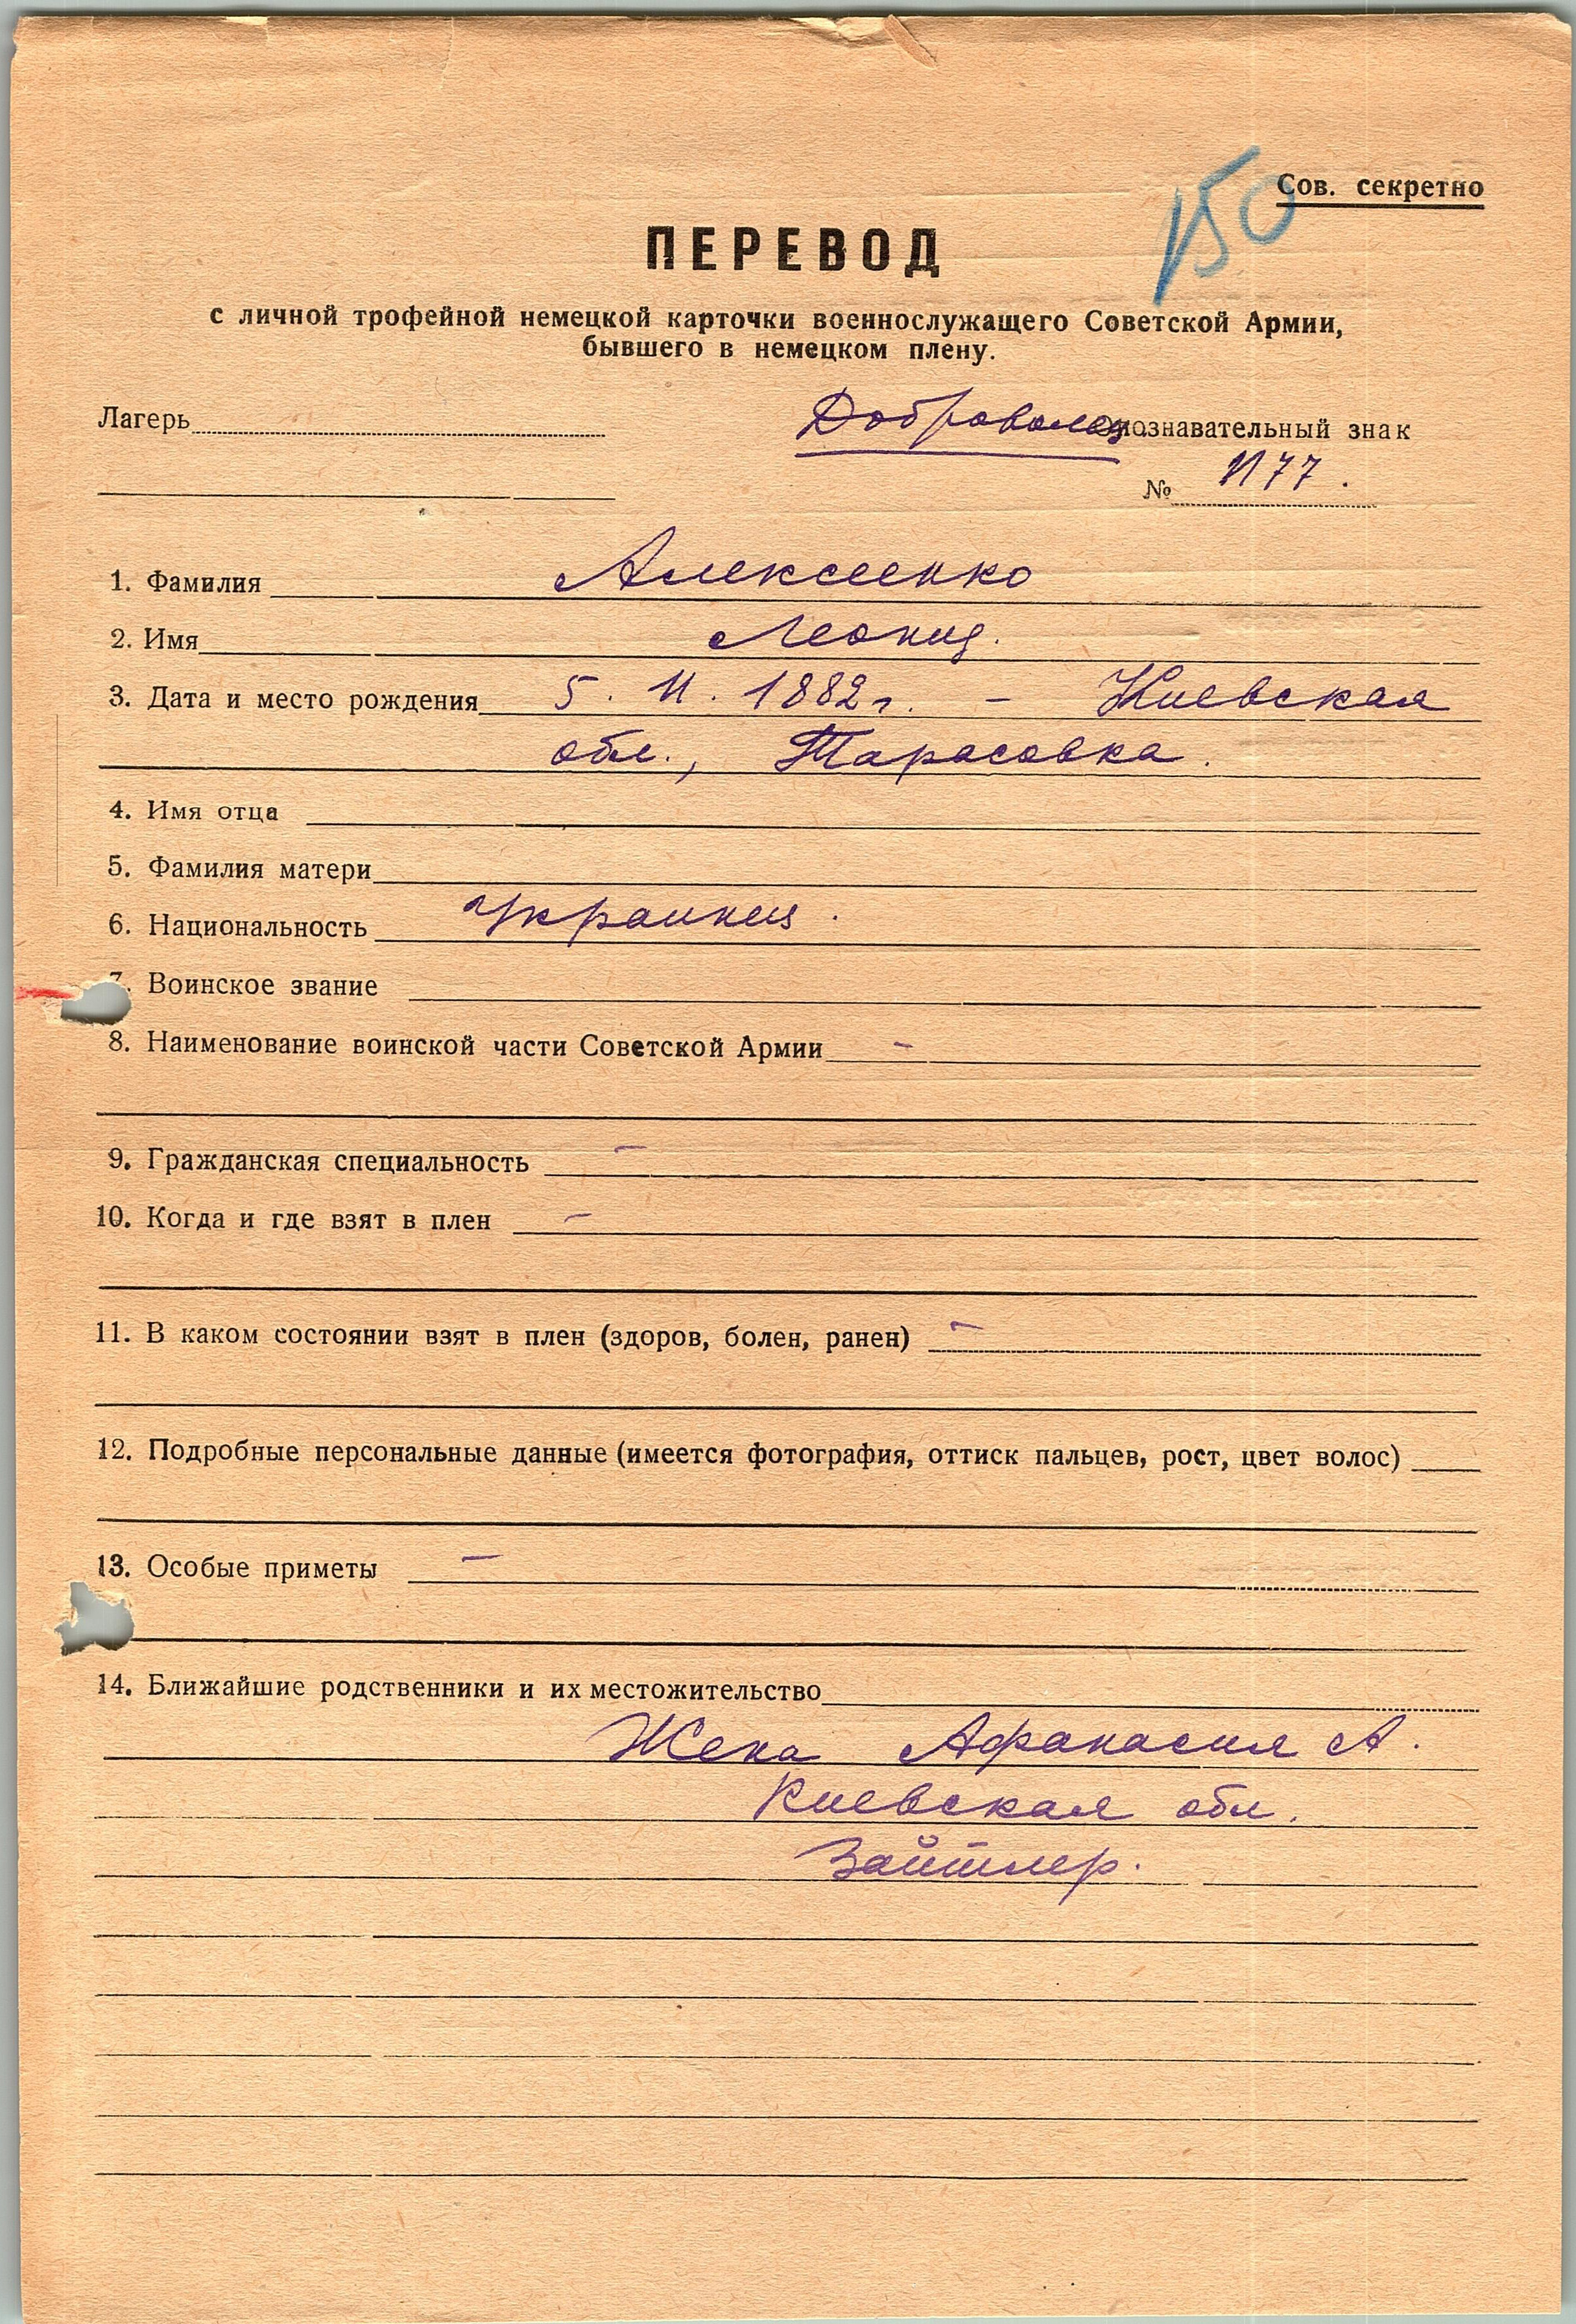 Сов. секретно
150
ПЕРЕВОД
с личной трофейной немецкой карточки военнослужащего Советской Армии,
бывшего в немецком плену.
Лагерь Доброволец Опознавательный знак
№ 1177.
1. Фамилия Алексеенко
2. Имя Леонид.
3. Дата и место рождения 5. 11. 1882 г. – Киевская
обл., Тарасовка.
4. Имя отца
5. Фамилия матери
6. Национальность украинец.
7. Воинское звание
8. Наименование воинской части Советской Армии –
9. Гражданская специальность –
10. Когда и где взят в плен –
11. В каком состоянии взят в плен (здоров, болен, ранен) –
12. Подробные персональные данные (имеется фотография, оттиск пальцев, рост, цвет волос)
13. Особые приметы –
14. Ближайшие родственники и их местожительство
Жена Афанасия А.
Киевская обл.
Зайтлер.